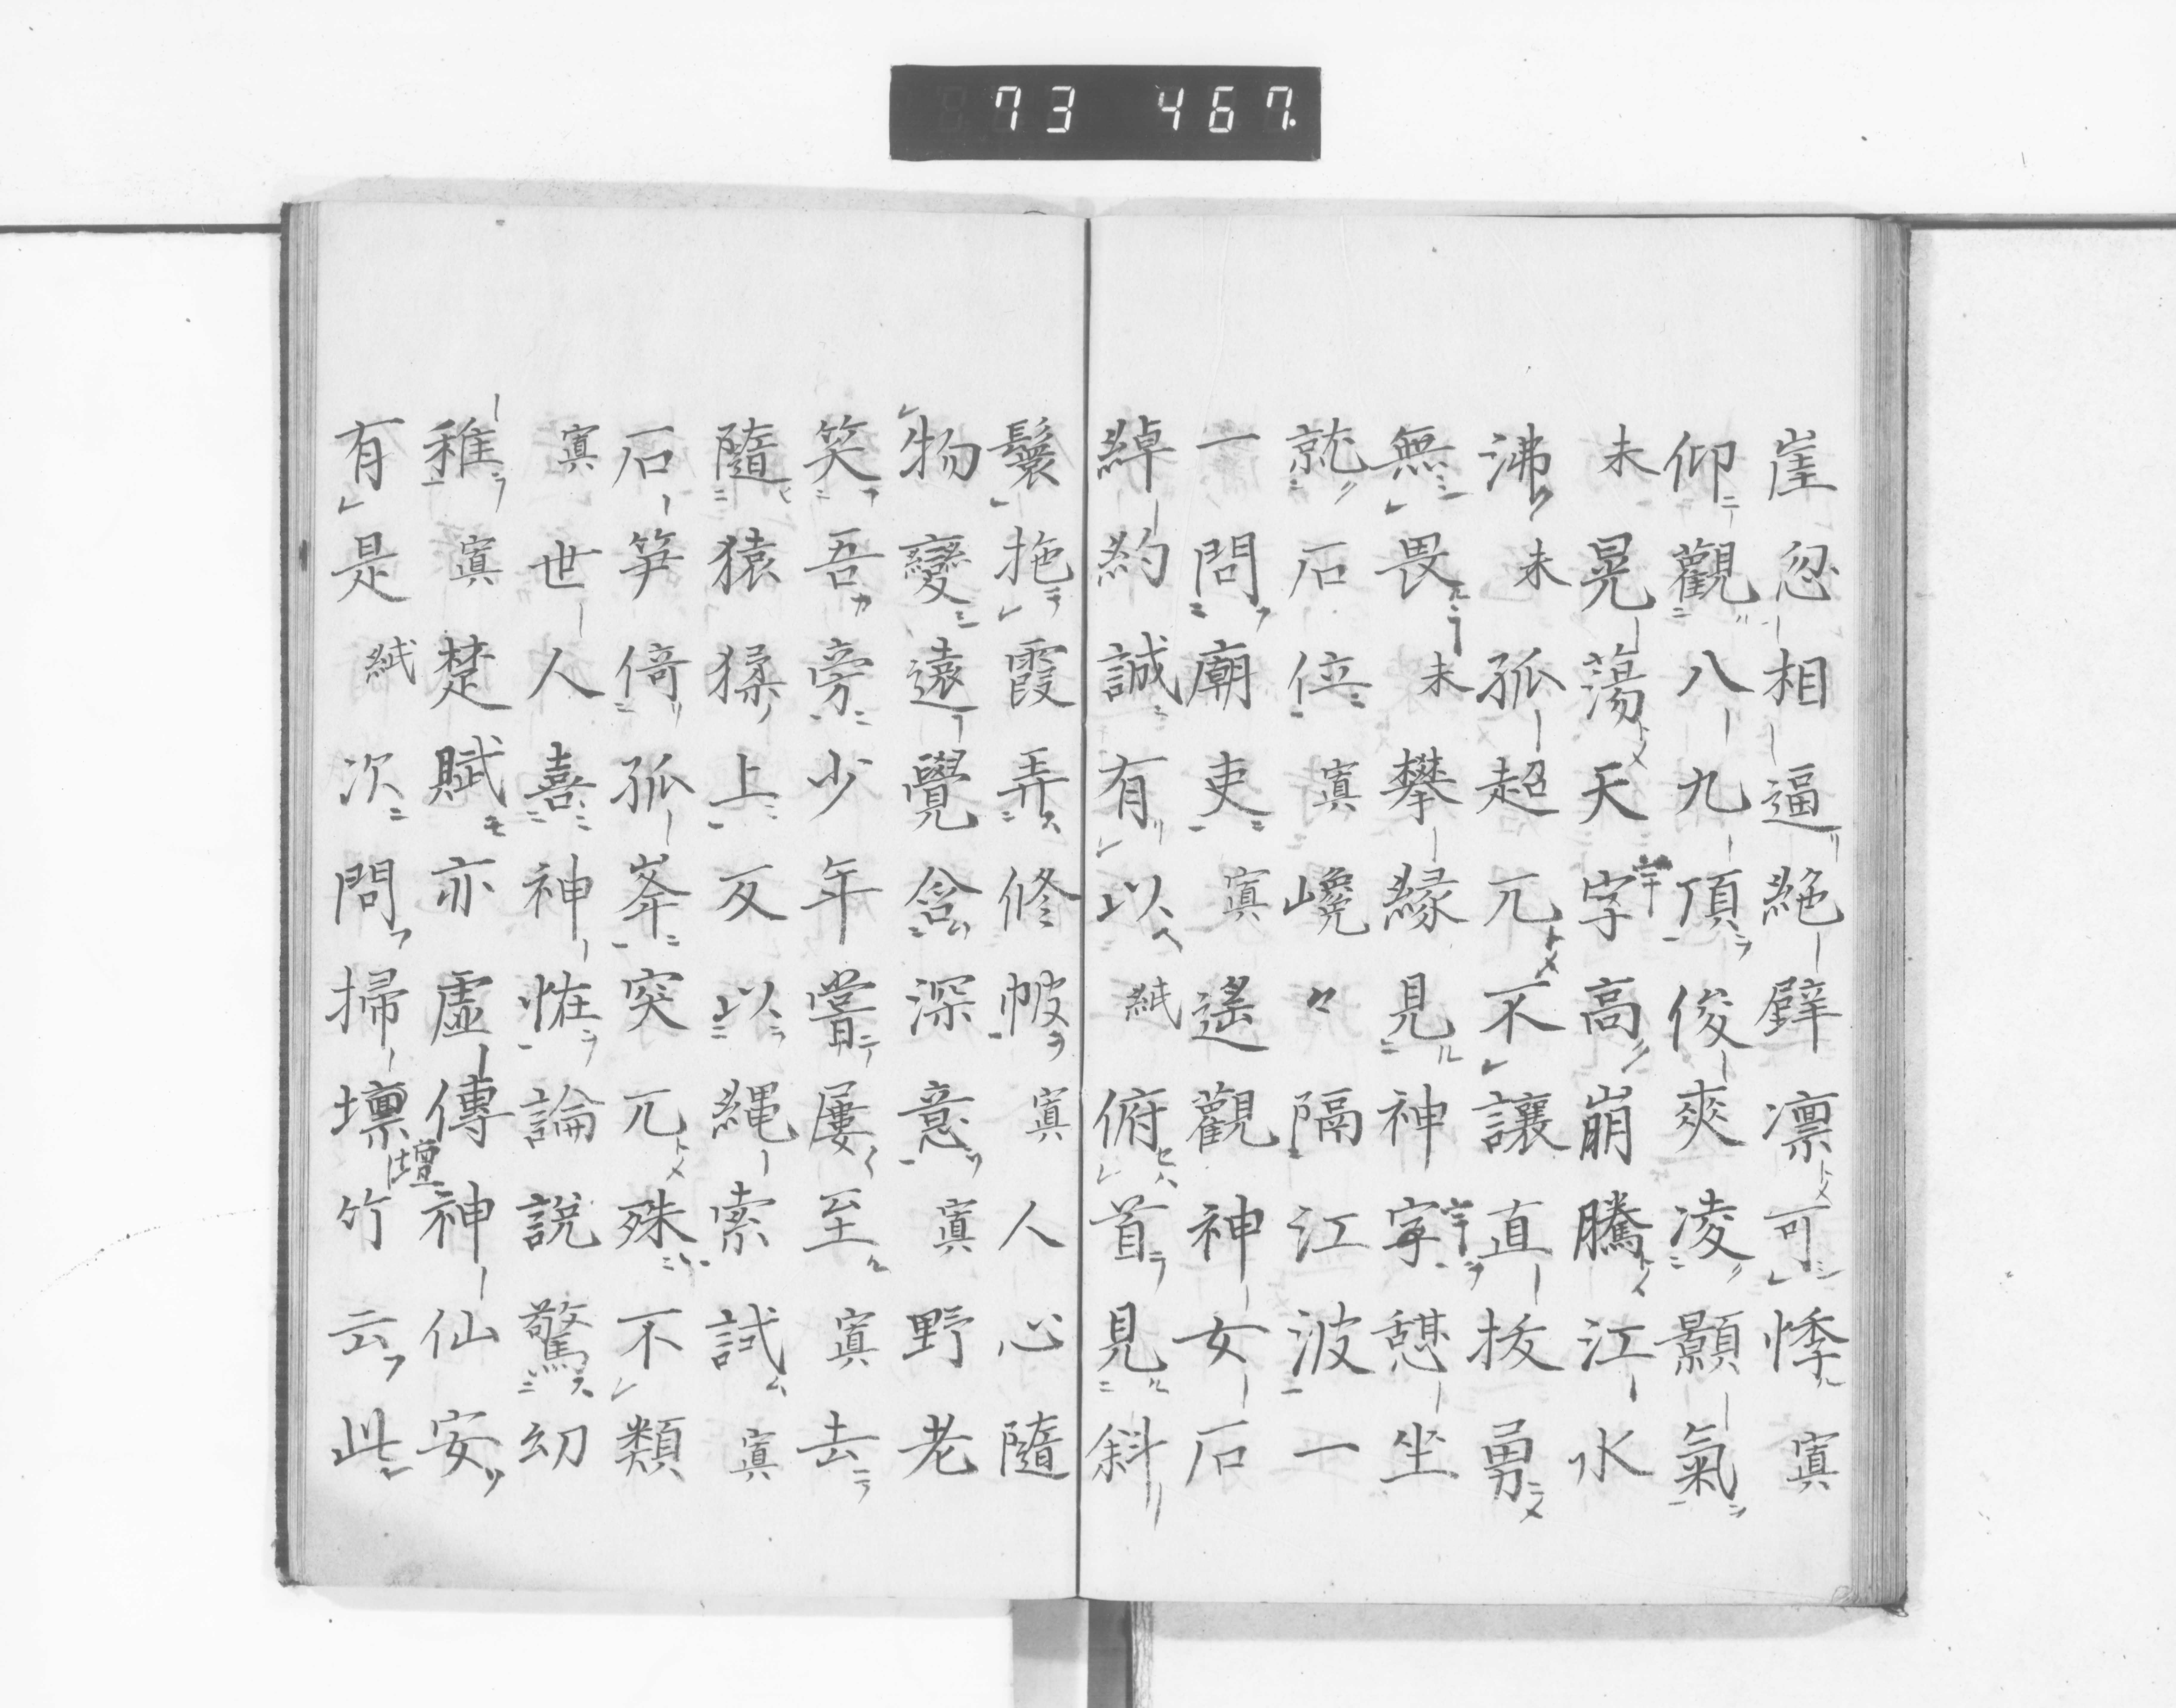 73 467.
崖忽相逼絶壁凛可悸寘
仰觀八九頂俊爽凌顥氣
未晃蕩天字高崩騰江水
沸未孤超兀不讓直拔勇
無畏未攀縁見神字憩坐
就石位寘巉々隔江波一
一問廟吏寘遙觀神女石
綽約誠有以紙俯首見斜
鬟拖霞弄修帔寘人心隨
物變遠覺含深意寘野老
笑吾旁少年嘗屢至寘去
隨猿猱上反以縄索試寘
石笋倚孤峯突兀殊不類
寘世人喜神恠論說驚幼
稚寘楚賦亦虛傳神仙安
有是紙次問掃壇竹云此